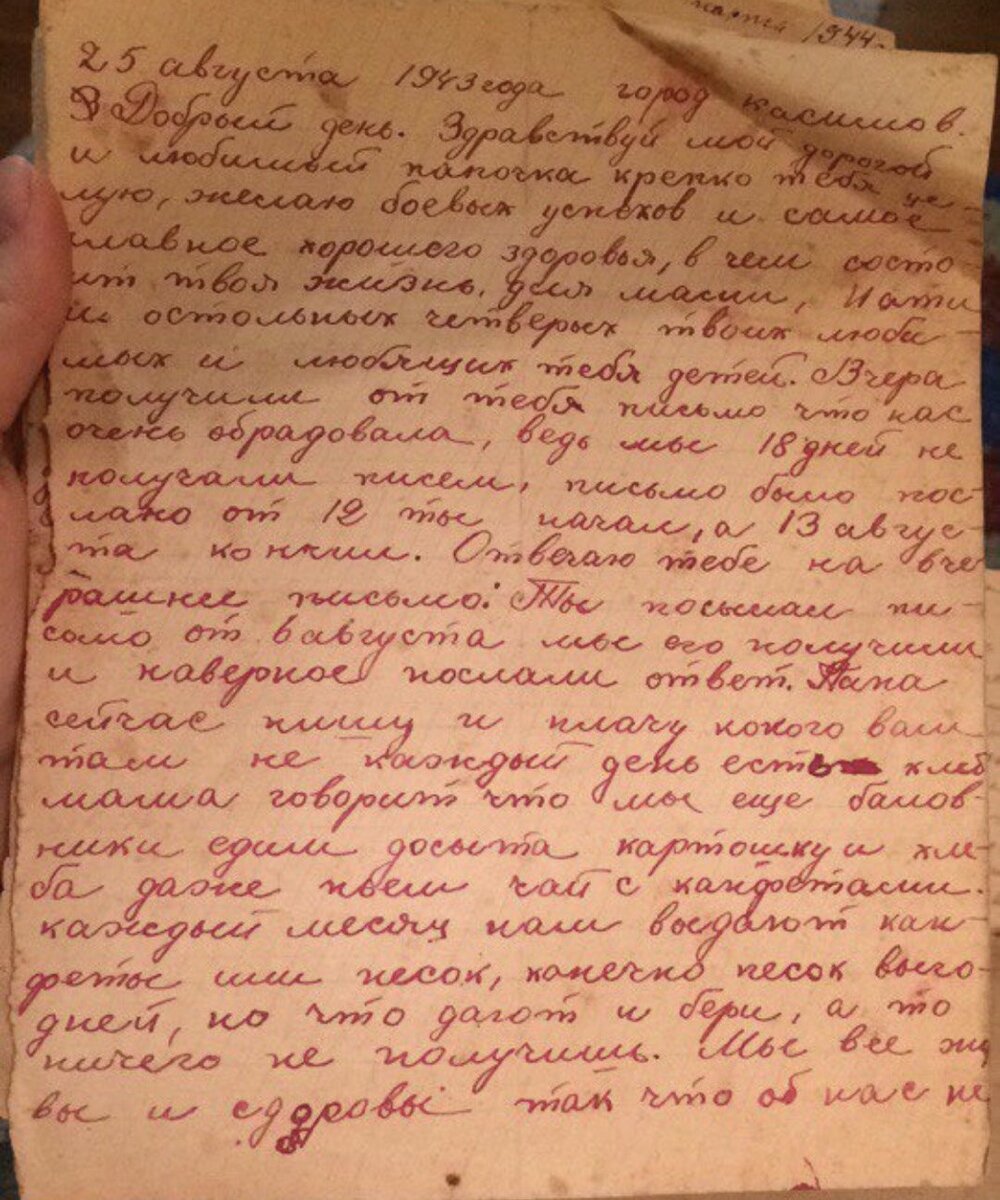 марта 1944.
25 августа 1943 года город касимов.
Добрый день. Здравствуй мой дорогой
и любимый папочка крепко тебя це-
лую, желаю боевых успехов и самое
главное хорошего здоровья, в чем состо
ит твоя жизнь, для мамы, Нати
и остольных четверых твоих люби-
мых и любящих тебя детей. Вчера
получили от тебя письмо что нас
очень обрадовала, ведь мы 18 дней не
получали писем, письмо было пос-
лано от 12 ты начал, а 13 авгус-
та кончил. Отвечаю тебе на вче
рашнее письмо: Ты посылал пи-
сомо от 6 августа мы его получили
и наверное послали ответ. Папа
сейчас пишу и плачу кокого вам
там не каждый день есть хлеб
мама говорит что мы еще балов-
ники едим досыта картошку и хле-
ба даже пьем чай с канфетами.
каждый месяц нам выдают кан-
феты или песок, канечно песок выго-
дней, но что дают и бери, а то
ничего не получишь. Мы все жи
вы и сдоровы так что об нас не